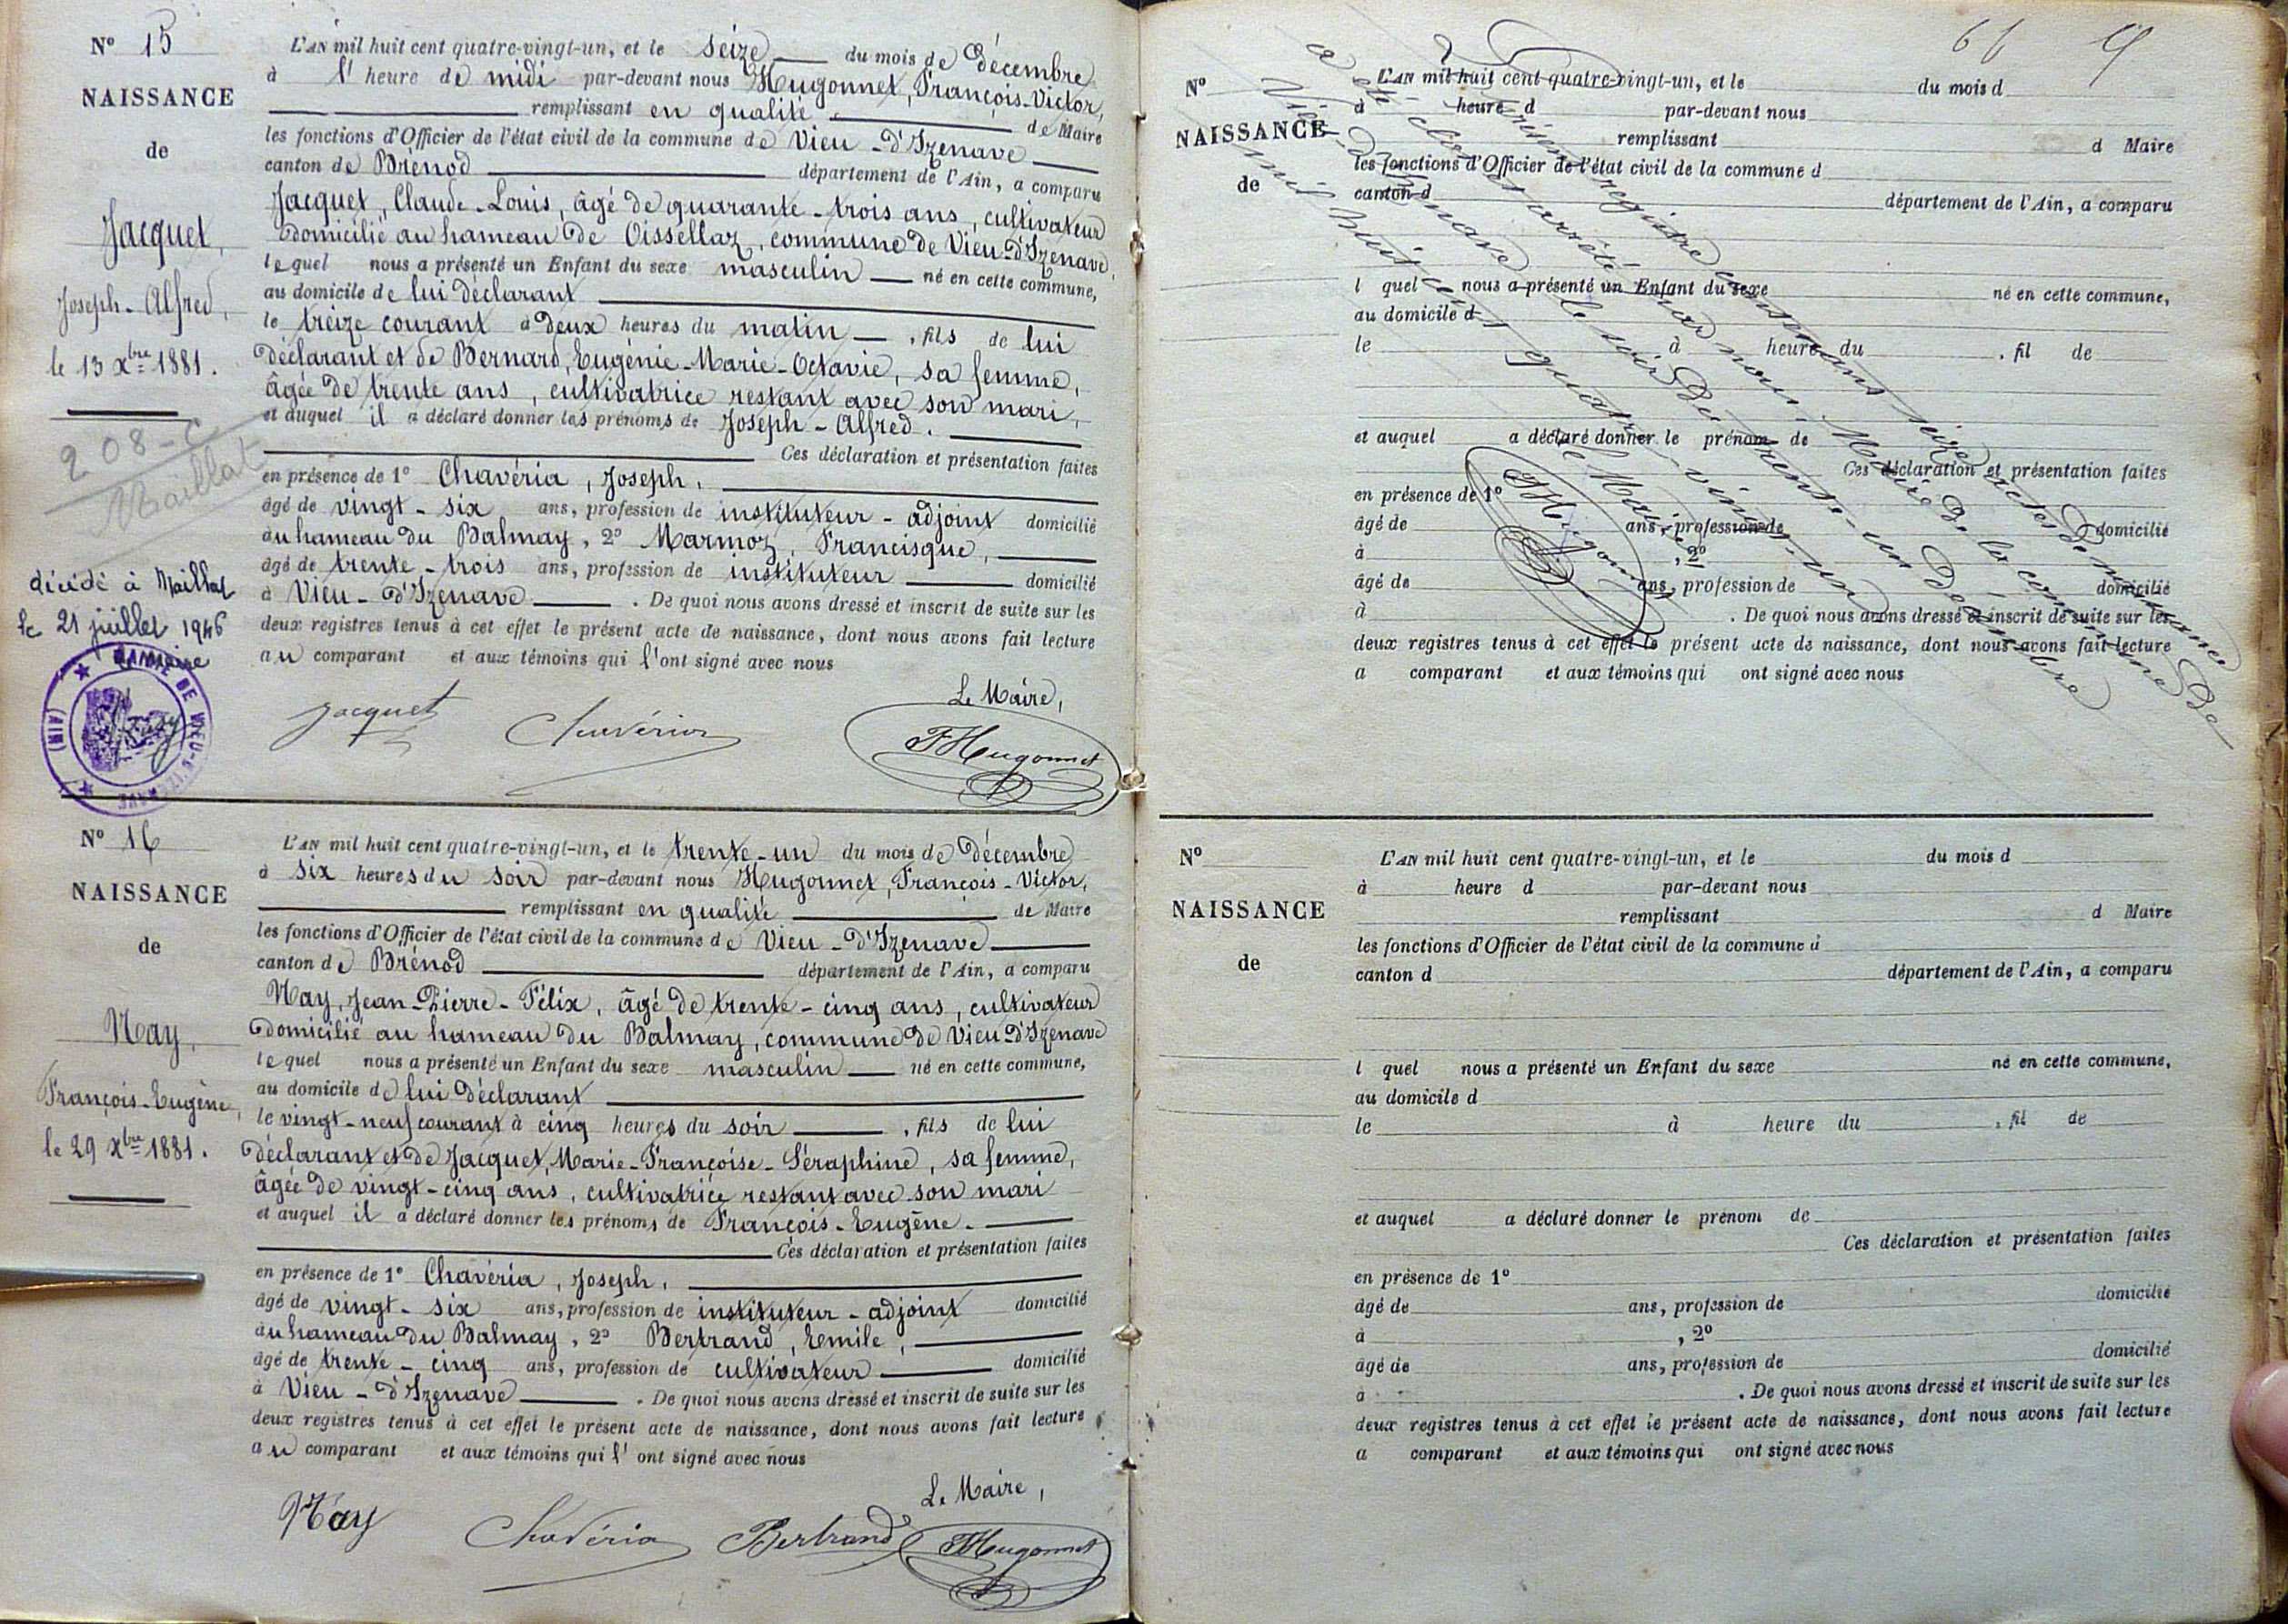 N° 15
NAISSANCE
de
Jacquet,
Joseph-Alfred,
le 13 Xbre 1881.
208-C
Maillat
décédé à Maillat
le 21 juillet 1946
Le Maire
MAIRIE DE VIEU-D'IZENAVE
(AIN)
L'AN mil huit cent quatre-vingt-un, et le seize du mois de Décembre
à l' heure de midi par-devant nous Hugonnet, François-Victor,
remplissant en qualité de Maire
les fonctions d'Officier de l'état civil de la commune de Vieu-d'Izenave
canton de Brénod département de l'Ain, a comparu
Jacquet, Claude-Louis, âgé de quarante-trois ans, cultivateur
domicilié au hameau de Oissellaz, commune de Vieu-d'Izenave,
lequel nous a présenté un Enfant du sexe masculin né en cette commune,
au domicile de lui déclarant
le treize courant à deux heures du matin, fils de lui
déclarant et de Bernard, Eugénie-Marie-Octavie, sa femme,
âgée de trente ans, cultivatrice restant avec son mari,
et auquel il a déclaré donner les prénoms de Joseph-Alfred.
Ces déclaration et présentation faites
en présence de 1° Chavéria, Joseph,
âgé de vingt-six ans, profession de instituteur-adjoint domicilié
au hameau du Balmay, 2° Marmoz, Francisque,
âgé de trente-trois ans, profession de instituteur domicilié
à Vieu-d'Izenave. De quoi nous avons dressé et inscrit de suite sur les
deux registres tenus à cet effet le présent acte de naissance, dont nous avons fait lecture
au comparant et aux témoins qui l'ont signé avec nous
Le Maire,
Jacquet Chavéria FHugonnet
N° 16
NAISSANCE
de
Nay,
François-Eugène,
le 29 Xbre 1881.
L'AN mil huit cent quatre-vingt-un, et le trente-un du mois de Décembre
à six heures du soir par-devant nous Hugonnet, François-Victor,
remplissant en qualité de Maire
les fonctions d'Officier de l'état civil de la commune de Vieu-d'Izenave
canton de Brénod département de l'Ain, a comparu
Nay, Jean-Pierre-Félix, âgé de trente-cinq ans, cultivateur
domicilié au hameau du Balmay, commune de Vieu-d'Izenave
lequel nous a présenté un Enfant du sexe masculin né en cette commune,
au domicile de lui déclarant
le vingt-neuf courant à cinq heures du soir, fils de lui
déclarant et de Jacquet, Marie-Françoise-Séraphine, sa femme,
âgée de vingt-cinq ans, cultivatrice restant avec son mari
et auquel il a déclaré donner les prénoms de François-Eugène.
Ces déclaration et présentation faites
en présence de 1° Chavéria, Joseph,
âgé de vingt-six ans, profession de instituteur-adjoint domicilié
au hameau du Balmay, 2° Bertrand, Emile,
âgé de trente-cinq ans, profession de cultivateur domicilié
à Vieu-d'Izenave. De quoi nous avons dressé et inscrit de suite sur les
deux registres tenus à cet effet le présent acte de naissance, dont nous avons fait lecture
au comparant et aux témoins qui l'ont signé avec nous
Le Maire,
Nay Chavéria Bertrand FHugonnet
66
N°
NAISSANCE
de
L'AN mil huit cent quatre-vingt-un, et le du mois d
à heure d par-devant nous
remplissant d Maire
les fonctions d'Officier de l'état civil de la commune d
canton d département de l'Ain, a comparu
l quel nous a présenté un Enfant du sexe né en cette commune,
au domicile d
le à heure du , fil de
et auquel a déclaré donner le prénom de
Ces déclaration et présentation faites
en présence de 1°
âgé de ans, profession de domicilié
à , 2°
âgé de ans, profession de domicilié
à . De quoi nous avons dressé et inscrit de suite sur les
deux registres tenus à cet effet le présent acte de naissance, dont nous avons fait lecture
a comparant et aux témoins qui ont signé avec nous
présent registre contenant seize actes de naissance
a été clos et arrêté par nous Maire de la commune de
Vieu-d'Izenave le soir du trente-un Décembre
mil huit cent quatre-vingt-un
Le Maire,
FHugonnet
N°
NAISSANCE
de
L'AN mil huit cent quatre-vingt-un, et le du mois d
à heure d par-devant nous
remplissant d Maire
les fonctions d'Officier de l'état civil de la commune d
canton d département de l'Ain, a comparu
l quel nous a présenté un Enfant du sexe né en cette commune,
au domicile d
le à heure du , fil de
et auquel a déclaré donner le prénom de
Ces déclaration et présentation faites
en présence de 1°
âgé de ans, profession de domicilié
à , 2°
âgé de ans, profession de domicilié
à . De quoi nous avons dressé et inscrit de suite sur les
deux registres tenus à cet effet le présent acte de naissance, dont nous avons fait lecture
a comparant et aux témoins qui ont signé avec nous